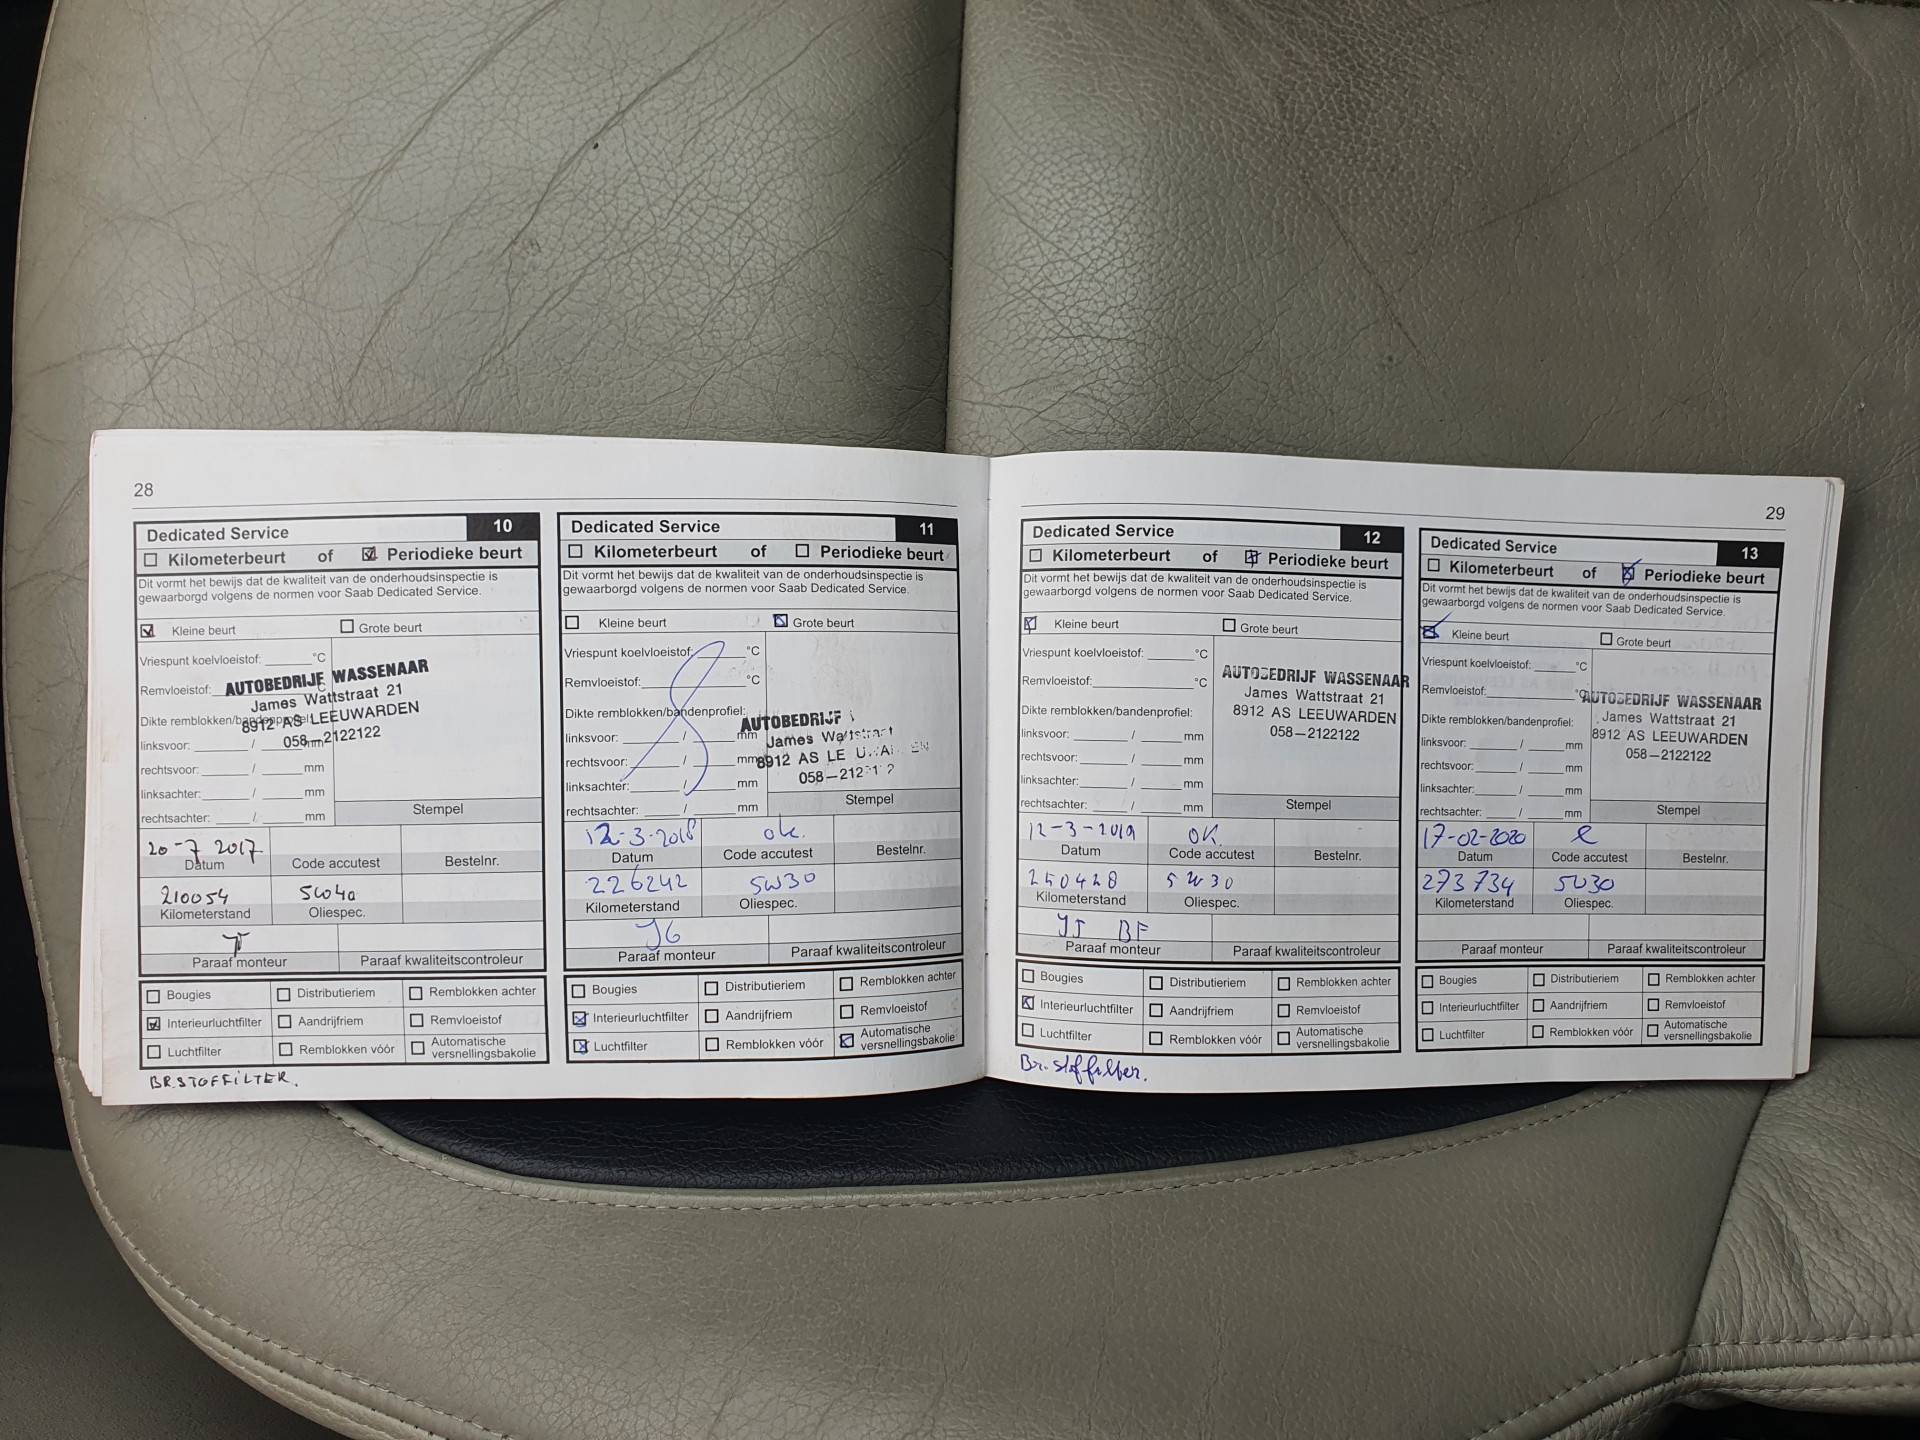 28
Dedicated Service 10
Kilometerbeurt of Periodieke beurt
Dit vormt het bewijs dat de kwaliteit van de onderhoudsinspectie is
gewaarborgd volgens de normen voor Saab Dedicated Service.
Kleine beurt Grote beurt
Vriespunt koelvloeistof: °C
Remvloeistof:
Dikte remblokken/bandenprofiel:
linksvoor: / mm
rechtsvoor: / mm
linksachter: / mm
rechtsachter: / mm
AUTOBEDRIJF WASSENAAR
James Wattstraat 21
8912 AS LEEUWARDEN
058-2122122
20-7 2017
Datum Code accutest Bestelnr.
210054 5W40
Kilometerstand Oliespec.
Paraaf monteur Paraaf kwaliteitscontroleur
Bougies Distributieriem Remblokken achter
Interieurluchtfilter Aandrijfriem Remvloeistof
Luchtfilter Remblokken vóór Automatische
versnellingsbakolie
BR.STOFFILTER.
Dedicated Service 11
Kilometerbeurt of Periodieke beurt
Dit vormt het bewijs dat de kwaliteit van de onderhoudsinspectie is
gewaarborgd volgens de normen voor Saab Dedicated Service.
Kleine beurt Grote beurt
Vriespunt koelvloeistof: °C
Remvloeistof: °C
Dikte remblokken/bandenprofiel:
linksvoor: / mm
rechtsvoor: / mm
linksachter: / mm
rechtsachter: / mm
AUTOBEDRIJF
James Wattstraat
8912 AS
Stempel
12-3-2018 ok.
Datum Code accutest Bestelnr.
226242 5W30
Kilometerstand Oliespec.
Paraaf monteur Paraaf kwaliteitscontroleur
Bougies Distributieriem Remblokken achter
Interieurluchtfilter Aandrijfriem Remvloeistof
Luchtfilter Remblokken vóór Automatische
versnellingsbakolie
29
Dedicated Service 12
Kilometerbeurt of Periodieke beurt
Dit vormt het bewijs dat de kwaliteit van de onderhoudsinspectie is
gewaarborgd volgens de normen voor Saab Dedicated Service.
Kleine beurt Grote beurt
Vriespunt koelvloeistof: °C
Remvloeistof: °C
Dikte remblokken/bandenprofiel:
linksvoor: / mm
rechtsvoor: / mm
linksachter: / mm
rechtsachter: / mm
AUTOBEDRIJF WASSENAAR
James Wattstraat 21
8912 AS LEEUWARDEN
058-2122122
Stempel
12-3-2019 OK.
Datum Code accutest Bestelnr.
250428 5W30
Kilometerstand Oliespec.
BF
Paraaf monteur Paraaf kwaliteitscontroleur
Bougies Distributieriem Remblokken achter
Interieurluchtfilter Aandrijfriem Remvloeistof
Luchtfilter Remblokken vóór Automatische
versnellingsbakolie
Br.stoffilter.
Dedicated Service 13
Kilometerbeurt of Periodieke beurt
Dit vormt het bewijs dat de kwaliteit van de onderhoudsinspectie is
gewaarborgd volgens de normen voor Saab Dedicated Service.
Kleine beurt Grote beurt
Vriespunt koelvloeistof: °C
Remvloeistof: °C
Dikte remblokken/bandenprofiel:
linksvoor: / mm
rechtsvoor: / mm
linksachter: / mm
rechtsachter: / mm
AUTOBEDRIJF WASSENAAR
James Wattstraat 21
8912 AS LEEUWARDEN
058-2122122
Stempel
17-02-2020
Datum Code accutest Bestelnr.
273734 5W30
Kilometerstand Oliespec.
Paraaf monteur Paraaf kwaliteitscontroleur
Bougies Distributieriem Remblokken achter
Interieurluchtfilter Aandrijfriem Remvloeistof
Luchtfilter Remblokken vóór Automatische
versnellingsbakolie